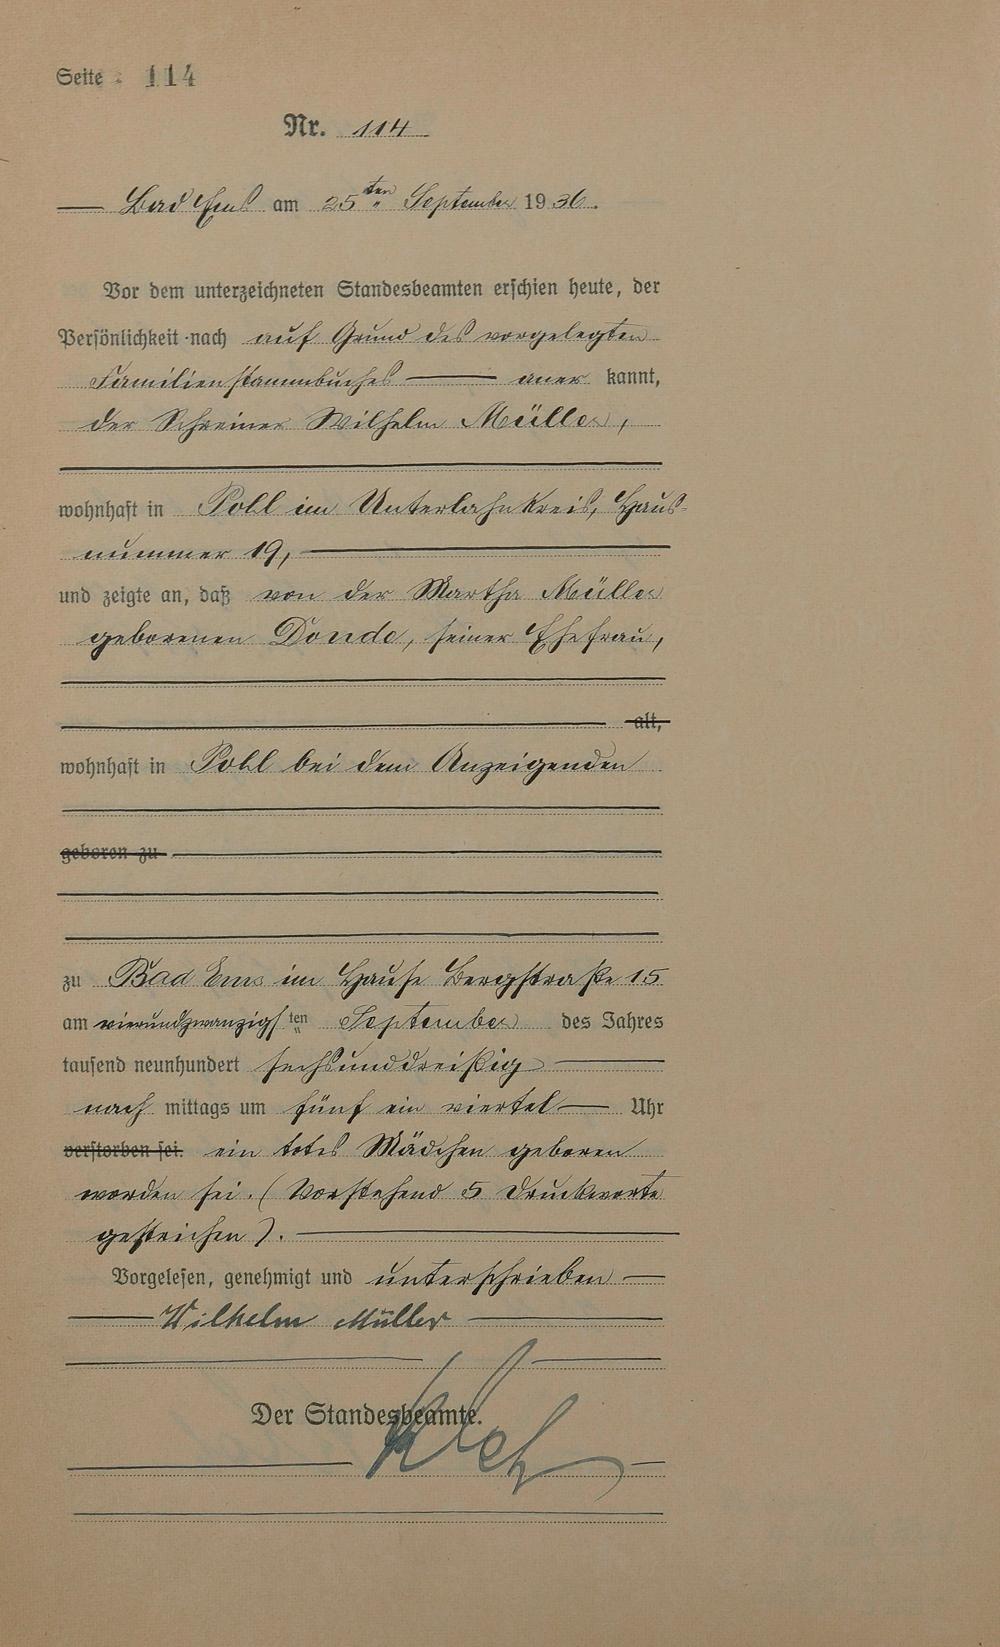 Seite 114
Nr. 114
Bad Ems am 25ten September 1936.
Vor dem unterzeichneten Standesbeamten erschien heute, der
Persönlichkeit nach auf Grund des vorgelegten
Familienstammbuches aner kannt,
der Schreiner Wilhelm Müller,
wohnhaft in Pohl im Unterlahnkreis, Haus-
nummer 19,
und zeigte an, daß von der Martha Müller
geborenen Donde, seiner Ehefrau,
alt,
wohnhaft in Pohl bei dem Anzeigenden
geboren zu
zu Bad Ems im Hause Bergstraße 15
am vierundzwanzigsten September des Jahres
tausend neunhundert sechsunddreißig
nach mittags um fünf ein viertel Uhr
verstorben sei. ein totes Mädchen geboren
worden sei. (Vorstehend 5 Druckworte
gestrichen).
Vorgelesen, genehmigt und unterschrieben
Wilhelm Müller
Der Standesbeamte.